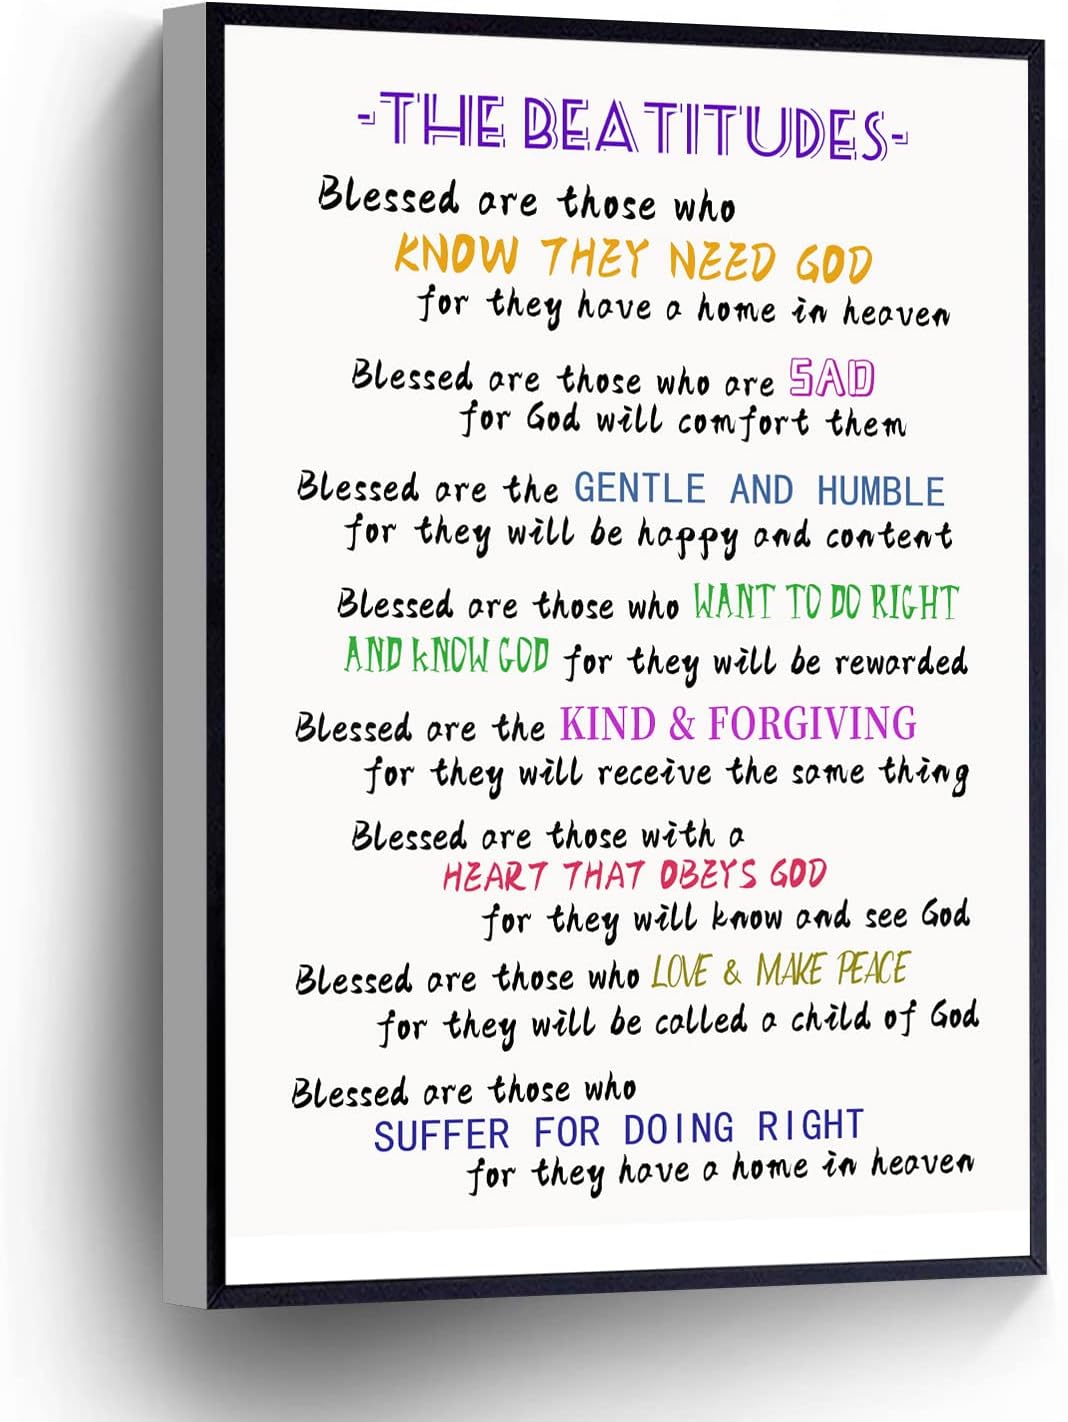 -THE BEATITUDES-
Blessed are those who
KNOW THEY NEED GOD
for they have a home in heaven
Blessed are those who are SAD
for God will comfort them
Blessed are the GENTLE AND HUMBLE
for they will be happy and content
Blessed are those who WANT TO DO RIGHT
AND KNOW GOD for they will be rewarded
Blessed are the KIND & FORGIVING
for they will receive the same thing
Blessed are those with a
HEART THAT OBEYS GOD
for they will know and see God
Blessed are those who LOVE & MAKE PEACE
for they will be called a child of God
Blessed are those who
SUFFER FOR DOING RIGHT
for they have a home in heaven